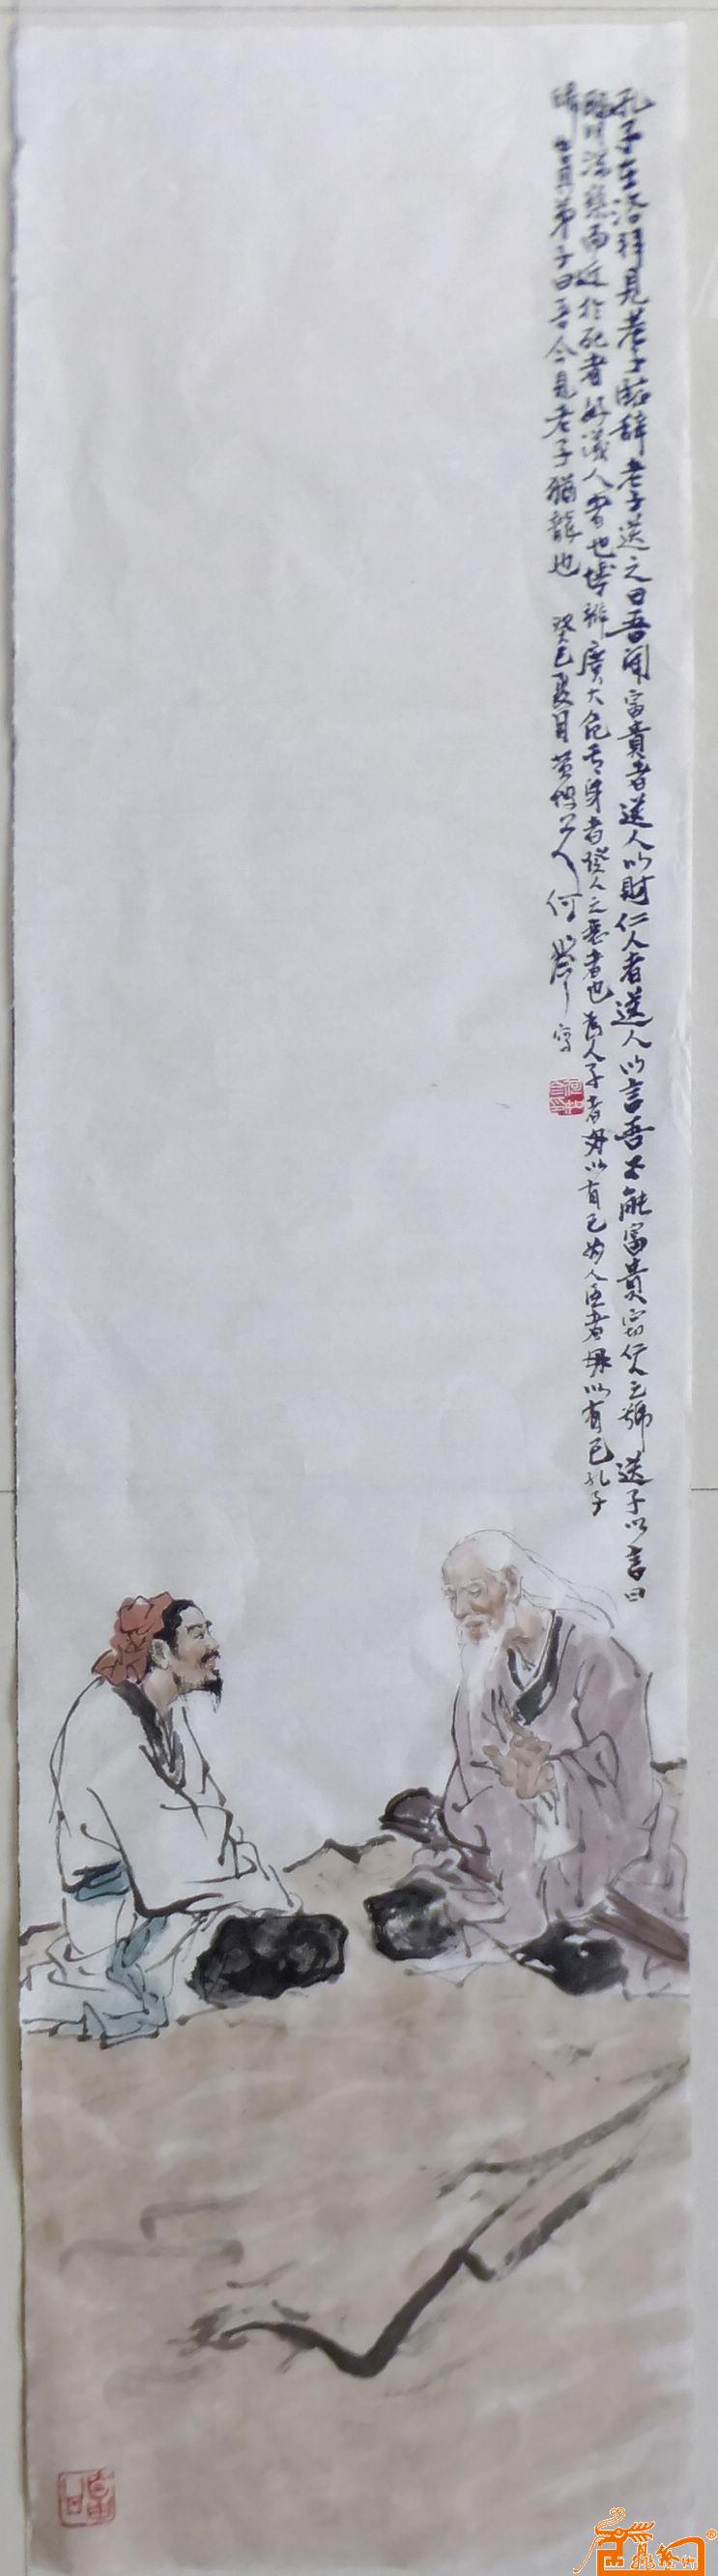 孔子在洛拜見老子臨辞老子送之曰吾闻富貴者送人以財仁人者送人以言吾不能富貴窃仁人之號送子以言曰
聰明深察而近於死者好議人者也博辯廣大危其身者發人之惡者也為人子者毋以有己為人臣者毋以有己孔子
歸 弟子曰吾今見老子猶龍也 癸巳夏月黄 人何 寫